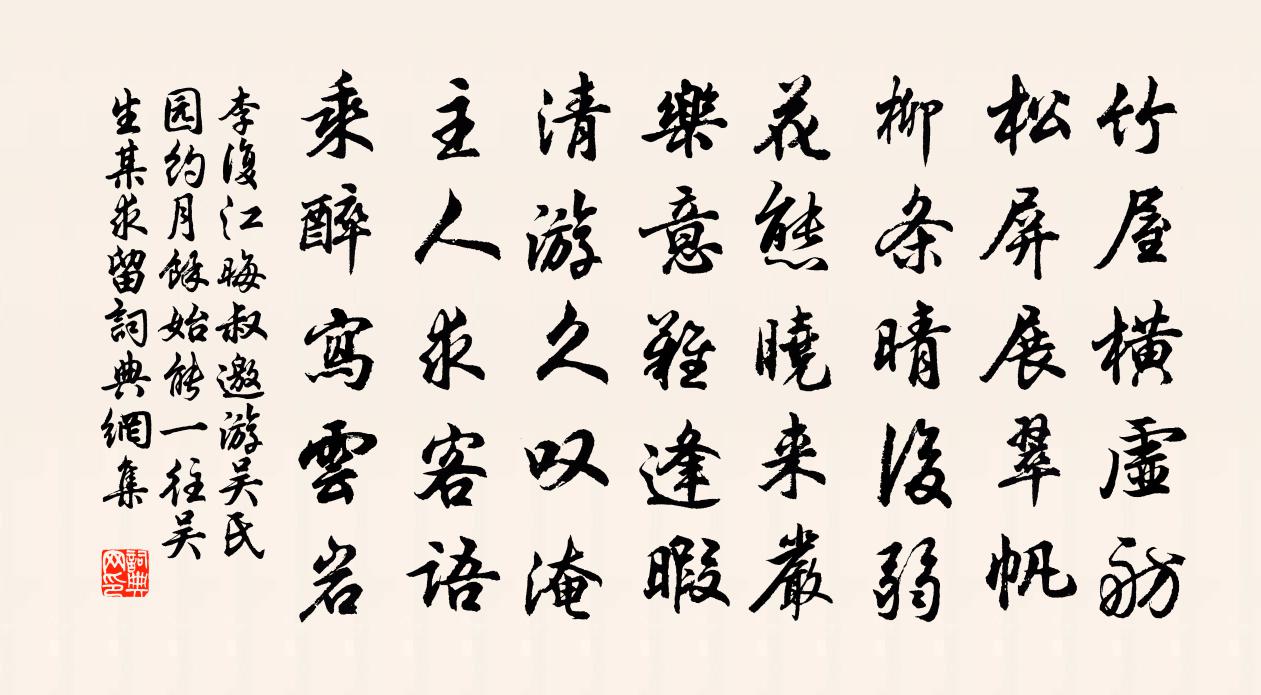 竹屋横虛舫
松屏展翠帆
柳条晴後弱
花態曉来嚴
樂意難逢暇
清游久叹淹
主人求客語
乘醉寫雲岩
李復江晦叔邀游吴氏
园约月餘始能一往吴
生某求留詞典網集
詞典网印